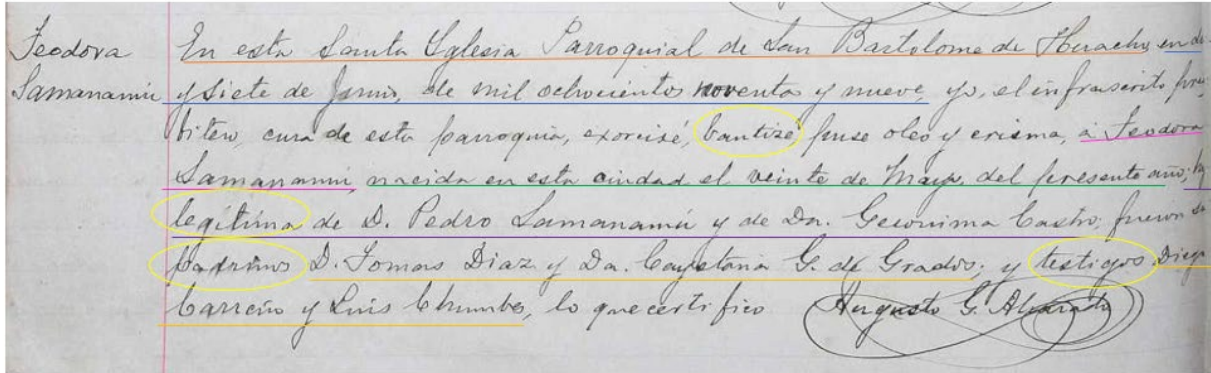 Teodora En esta Santa Yglesia Parroquial de San Bartolome de Huacho, en
Samanamú y siete de Junio, de mil ochocientos noventa y nueve, yo, el infrascrito pres
bitero, cura de esta parroquia, exorcisé, bautizé puse oleo y crisma, á Teodora
Samanamú, nacida en esta ciudad el veinte de Mayo, del presente año;
legítima de D. Pedro Samanamú y de Da. Geronima Castro; fueron
padrinos D. Tomas Diaz y Da. Cayetana G. de Grados; y testigos Diego
Carreño y Luis Chumbes, lo que certifico Augusto G. Alvarado